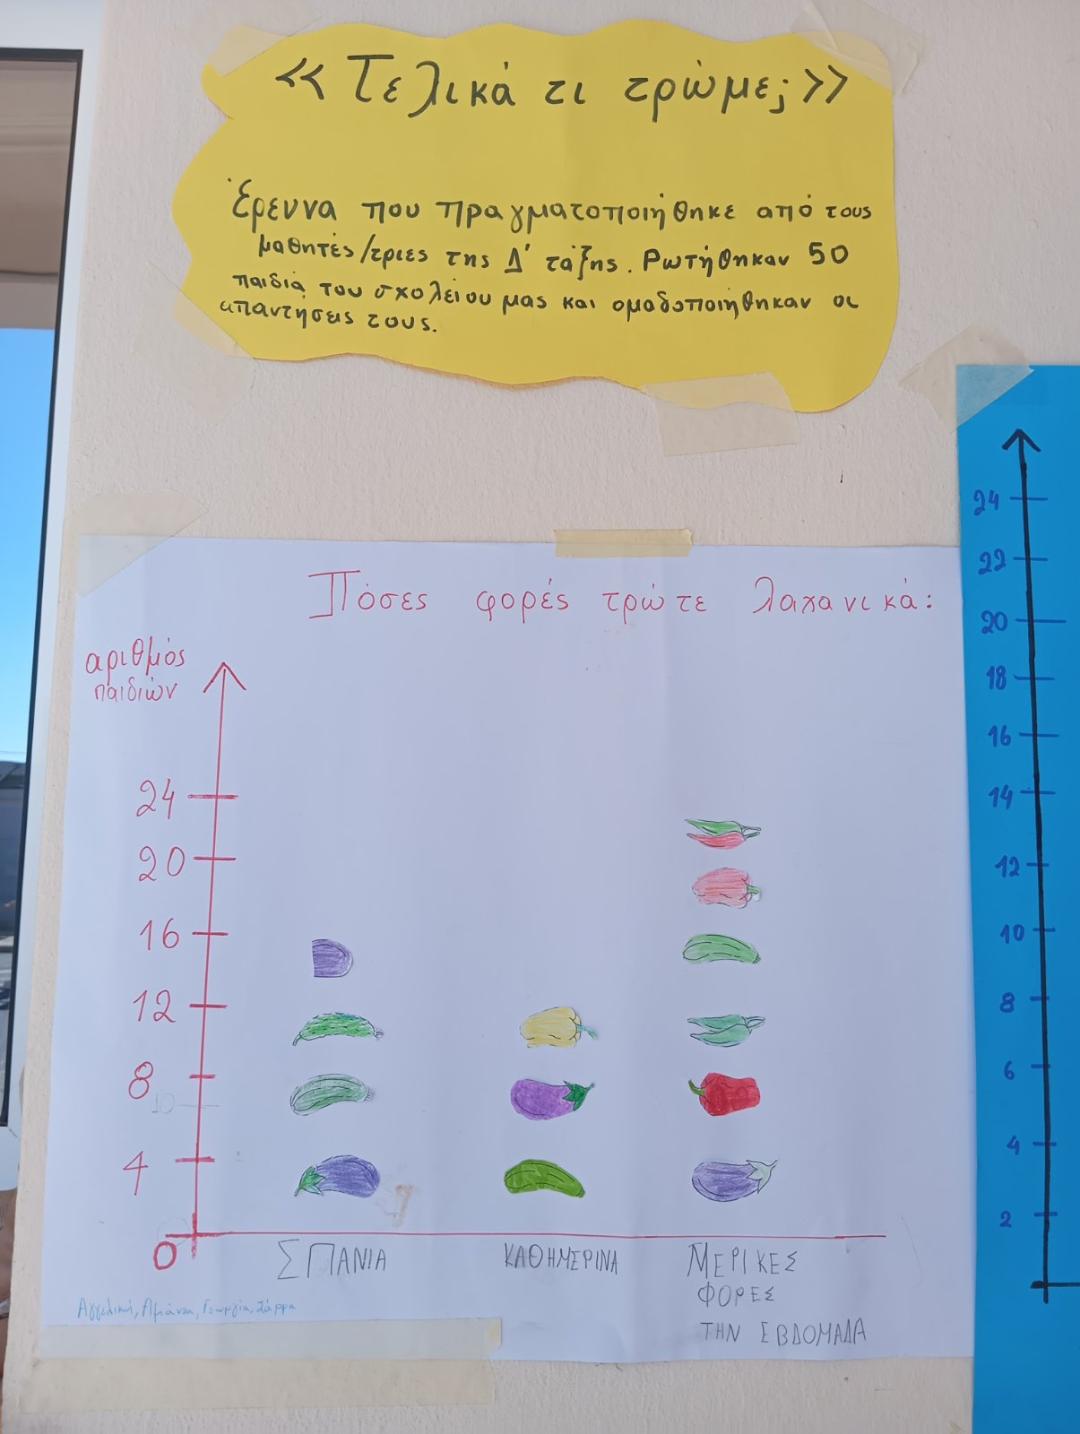 << Τελικά τι τρώμε; >>
Έρευνα που πραγματοποιήθηκε από τους
μαθητές/τριες της Δ' τάξης. Ρωτήθηκαν 50
παιδιά του σχολείου μας και ομαδοποιήθηκαν οι
απαντήσεις τους.
Πόσες φορές τρώτε λαχανικά:
αριθμός
παιδιών
24
20
16
12
8
10
4
0
ΣΠΑΝΙΑ
ΚΑΘΗΜΕΡΙΝΑ
ΜΕΡΙΚΕΣ
ΦΟΡΕΣ
ΤΗΝ ΕΒΔΟΜΑΔΑ
Αγγελική, Γεωργία,
24
22
20
18
16
14
12
10
8
6
4
2